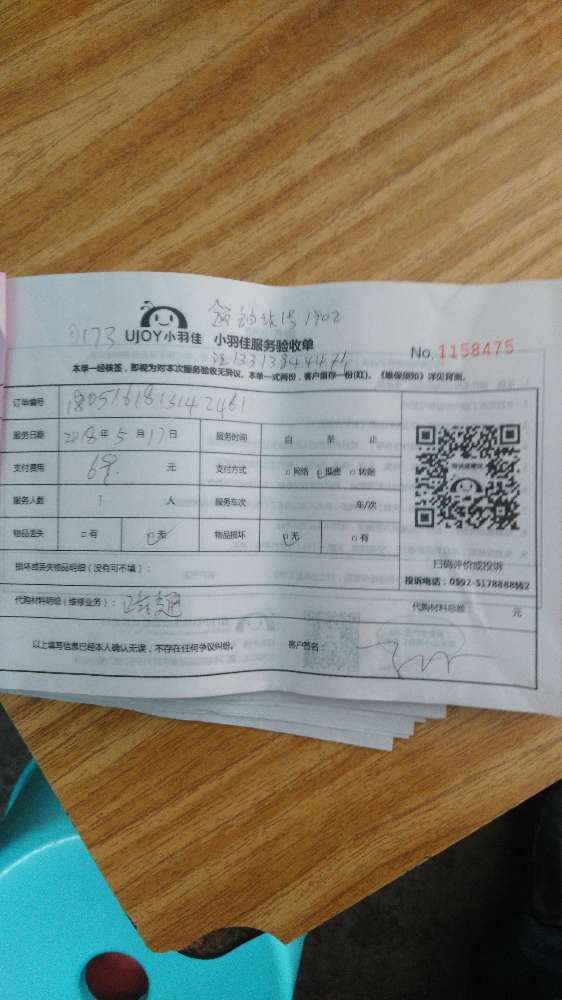 UJOY小羽佳
小羽佳服务验收单
No. 1158475
本单一经核签，即视为对本次服务验收无异议。本单一式两份，客户留存一份(红)。《维保须知》详见背面。
订单编号
服务日期 2018年 5 月 17 日 服务时间 自 至 止
支付费用 元 支付方式 □网络 □现金 □转账
服务人数 1 人 服务车次 车/次
物品丢失 □有 □无 物品损坏 □无 □有
损坏或丢失物品明细（没有可不填）：
扫码评价或投诉
投诉电话：0592-5178888转2
代购材料明细（维修业务）：
代购材料总额 元
以上填写信息已经本人确认无误，不存在任何争议纠纷。 客户签名：